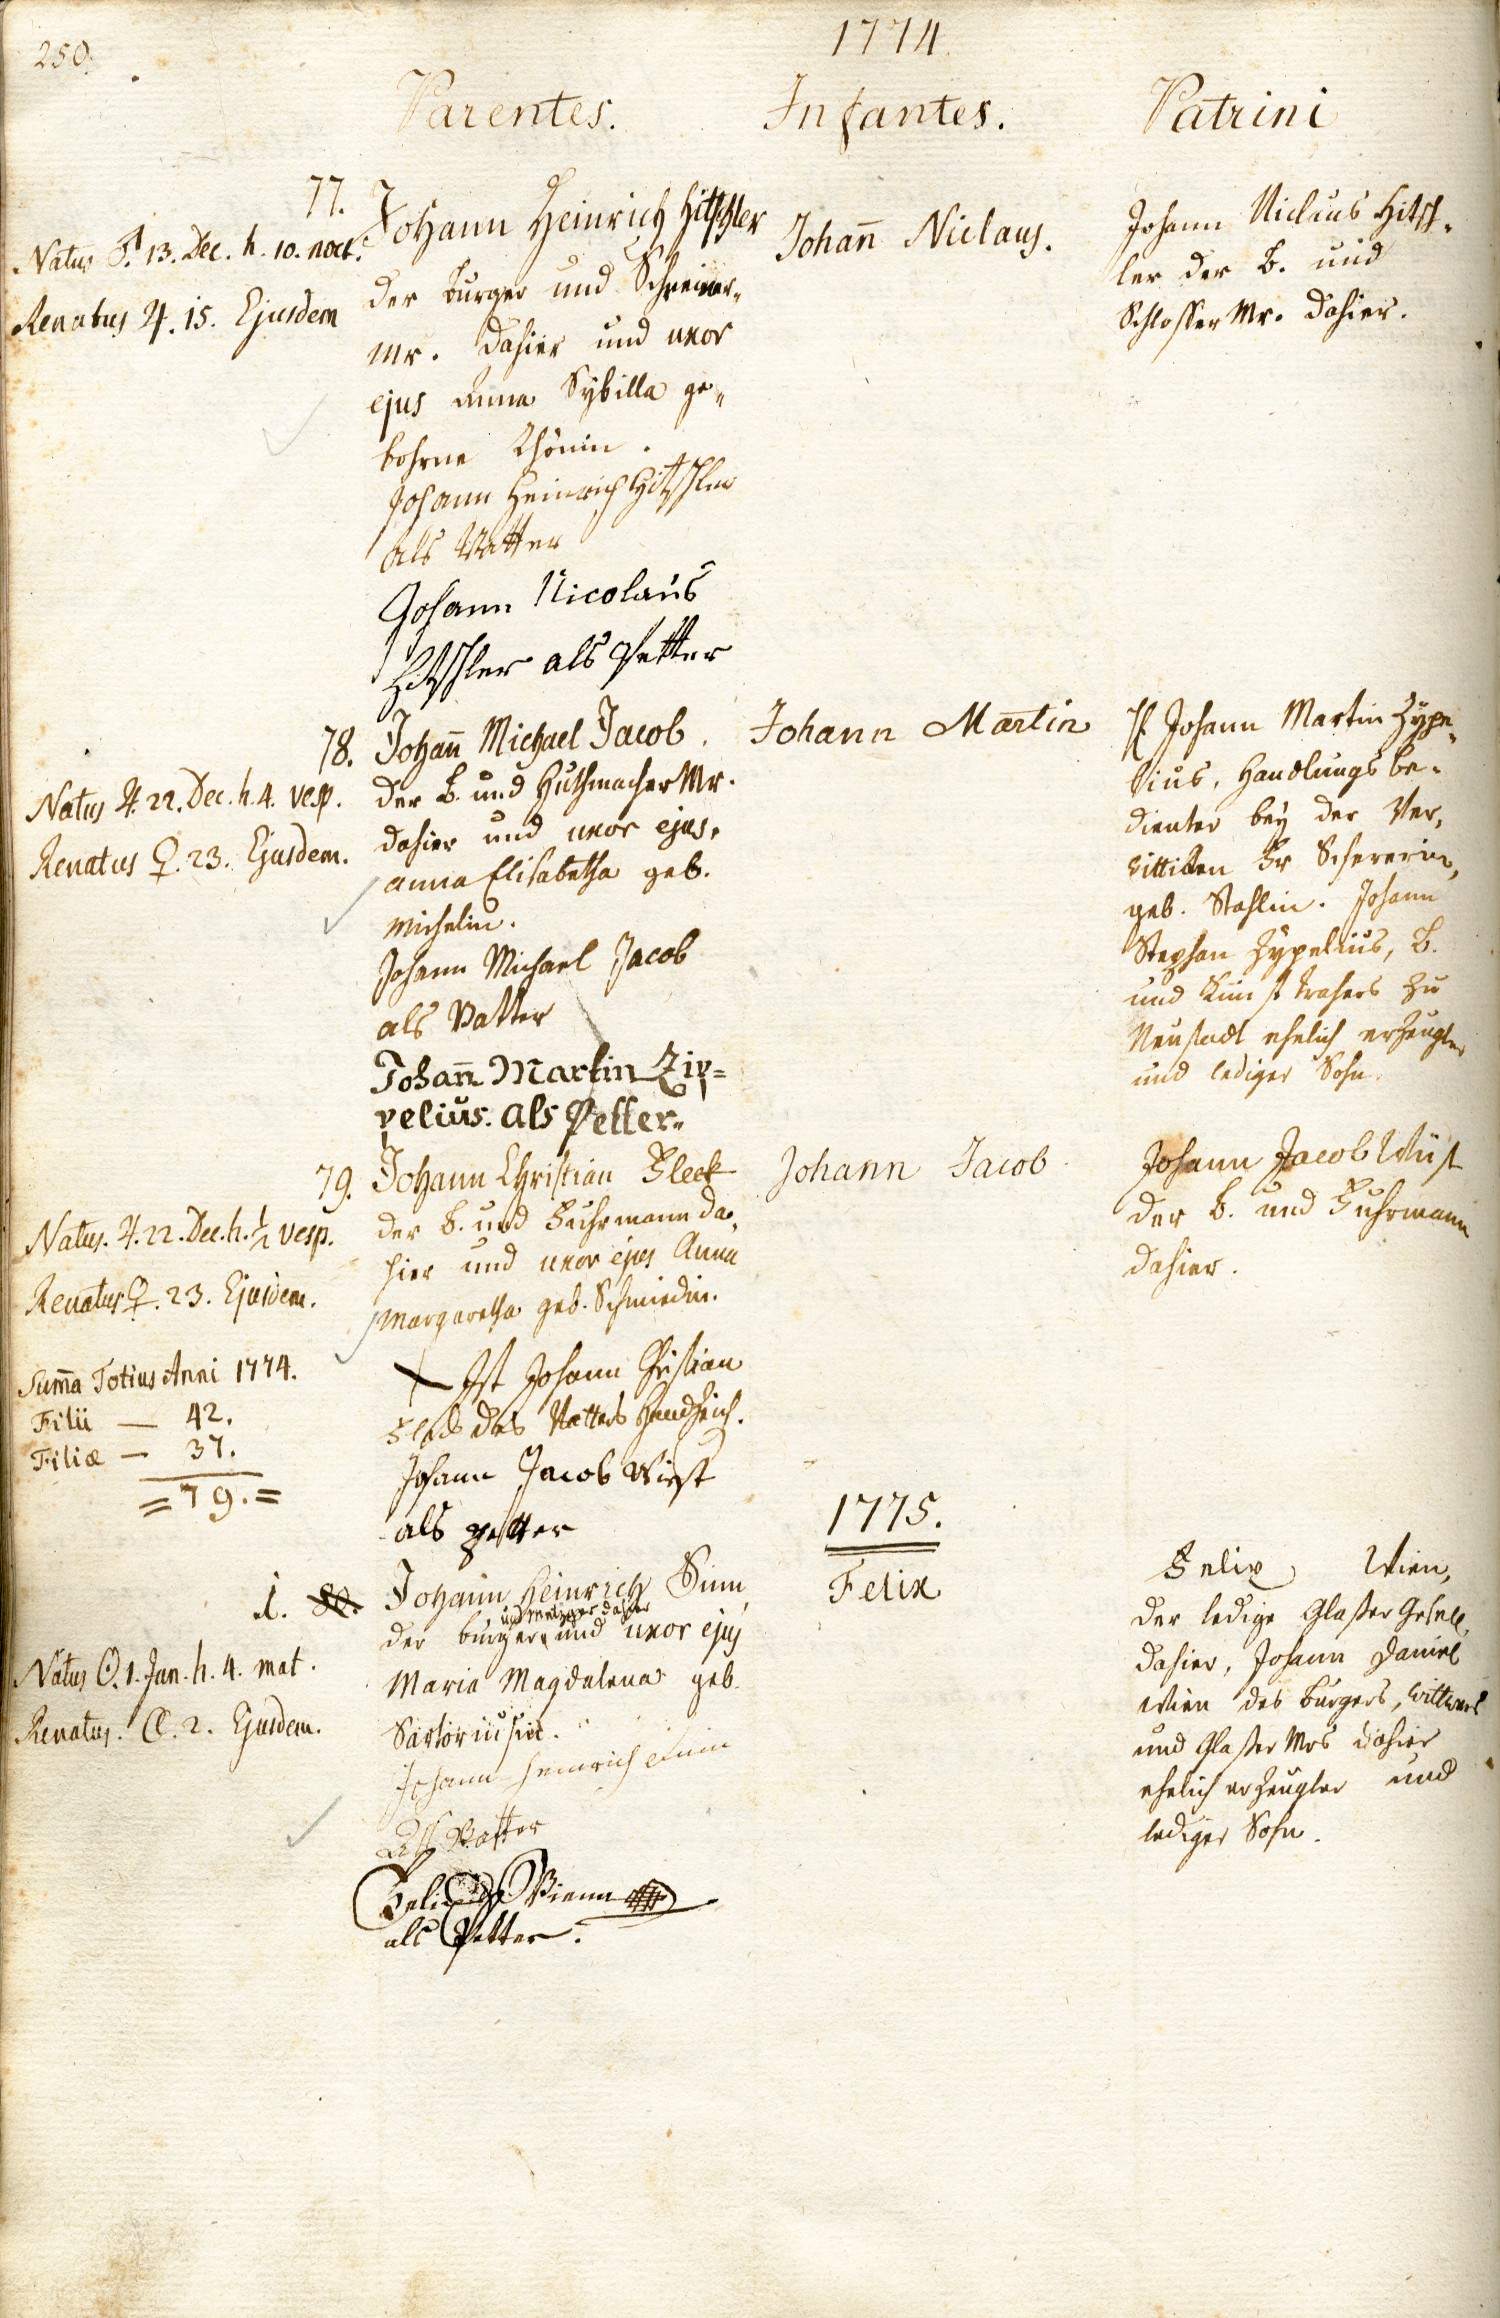 250.
1774.
Parentes.
Infantes.
Patrini
77.
Natus ♂. 13. Dec. h. 10. noct.
Renatus ♃. 15. Ejusdem
Johann Heinrich Hitschler
der burger und Schreiner„
Mr. dahier und uxor
ejus Anna Sybilla ge„
bohrne Thönin.
Johann Heinrich Hitschler
als Vatter
Johann Nicolaus
Hitschler als Petter
Johañ Niclaus.
Johann Niclaus Hitsch„
ler der b. und
Schlosser Mr. dahier.
78.
Natus ♃. 22. Dec. h. 4. vesp.
Renatus ♀. 23. Ejusdem.
Johañ Michael Jacob.
der b. und Huthmacher Mr.
dahier und uxor ejus,
anna Elisabetha geb.
Michelin.
Johann Michael Jacob
als Vatter
Johañ Martin Zip=
pelius. als Petter.
Johann Martin
H. Johann Martin Zype„
lius, Handlungs be„
dienter bey der Ver„
wittibten Fr Schererin,
geb. Stahlin. Johann
Stephan Zypelius, b.
und Kunst drehers zu
Neustadt ehelich erzeugter
und lediger Sohn.
79.
Natus. ♃. 22. Dec. h. ½ vesp.
Renatus ♀. 23. Ejusdem.
Johann Christian Fleck
der b. und Fuhrmann da„
hier und uxor ejus Anna
Margaretha geb. Schmiedin.
Ist Johann Christian
Fleck des Vatters Handzeich.
Johann Jacob Wiest
als petter
Johann Jacob
Johann Jacob Wüst
der b. und Fuhrmann
dahier.
Sum̃a Totius Anni 1774.
Filii — 42.
Filiæ — 37.
=79.=
1775.
1. 80.
Natus ☉. 1. Jan. h. 4. mat.
Renatus. ☾. 2. Ejusdem.
Johann Heinrich Sinn
und Metzger dahier
der burger und uxor ejus
Maria Magdalena geb.
Sartoriusin.
Johann Heinrich Sinn
Als Vatter
Felix Wienn
als Petter.
Felix
Felix Wien,
der ledige Glaßer Gesell,
dahier, Johann Daniel
Wien des burgers, Wittwers
und Glaßer Mrs dahier
ehelich erzeugter und
lediger Sohn.